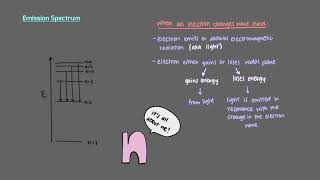 Emission Spectrum
when an electron changes wave state:
- electron emit or absorbs electromagnetic
radiation (aka light)
- electron either gains or loses nodal plane
gains energy
loses energy
from light
light is emitted in
resonance with the
change in the electron
wave
E
n=2
n=1
it's all
about me!
n